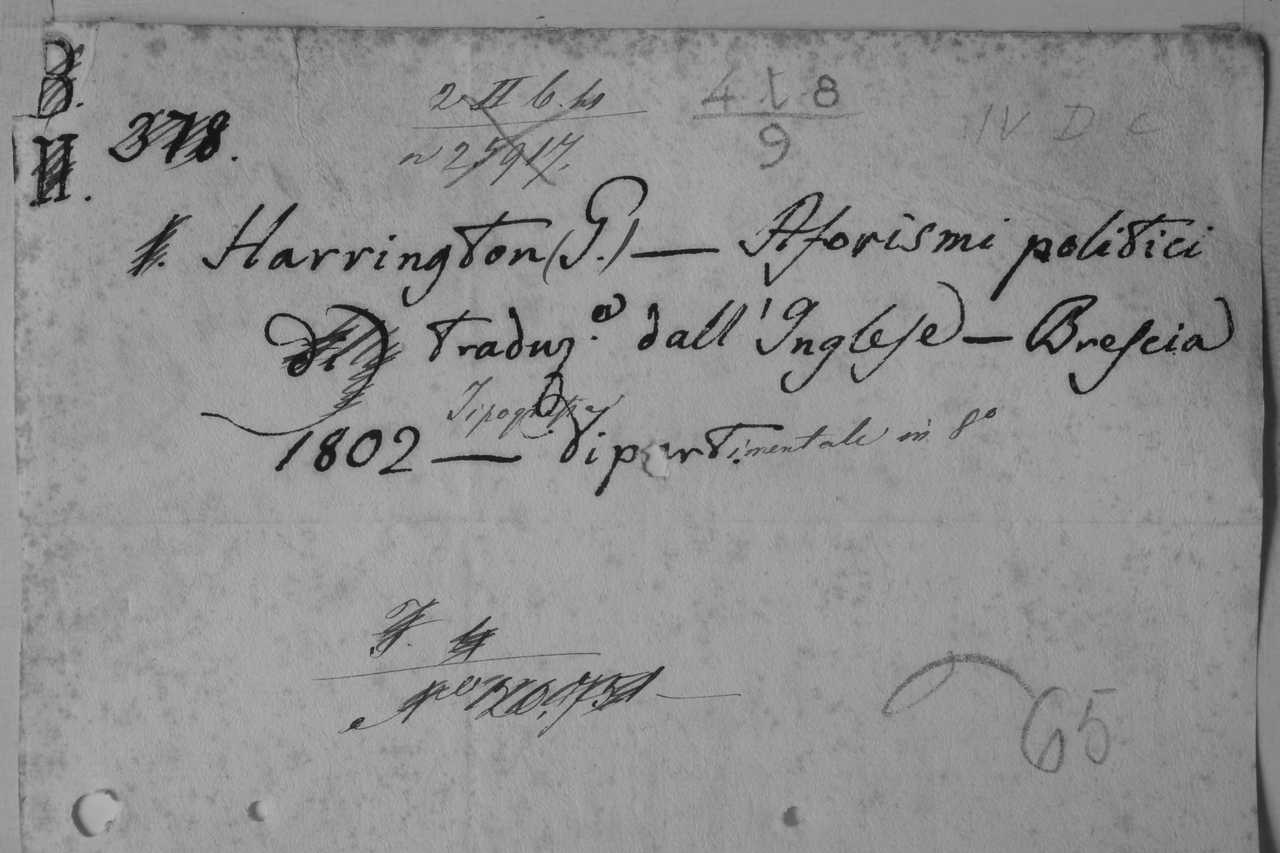 B.
II.
378.
2 II b. bis
n 25917.
4 t 8
9
IV D c
Harrington (G.) — Aforismi politici
traduz.e dall'Inglese — Brescia
1802 — Tipografia dipartimentale in 8º
65